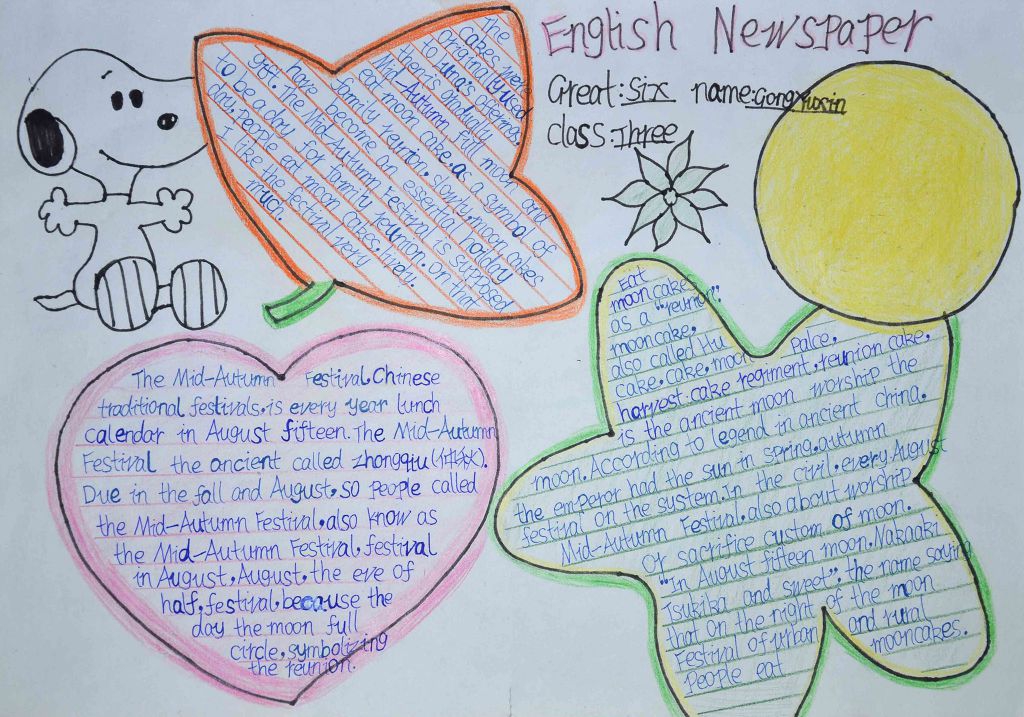 English Newspaper
Great: Six name: GongYuxin
class: Three
The
cakes were
originally used
to Luna's offering.
then is Mindfully
Mid-Autumn full moon and
eat moon cake, as a symbol of
family reunion, slowly, moon cakes
have become an essential holiday
gift. The Mid-Autumn Festival is supposed
to be a day for family reunion. on that
day. People eat moon cakes. lively.
I like the festival very
much.
The Mid-Autumn Festival, Chinese
traditional festivals, is every year lunch
calendar in August fifteen. The Mid-Autumn
Festival the ancient called zhongqiu(仲秋).
Due in the fall and August, so people called
the Mid-Autumn Festival, also know as
the Mid-Autumn Festival, festival
in August, August, the eve of
half, festival, because the
day the moon full
circle, symbolizing
the reunion.
Eat
mooncake
as a "reunion".
mooncake,
also called Hu
cake, cake, moon palce,
harvest cake regiment, reunion cake,
is the ancient moon worship the
moon. According to legend in ancient china,
the emperor had the sun in spring, autumn
festival on the system. In the civil, every August
Mid-Autumn Festival, also about worship
or sacrifice custom of moon.
"In August fifteen moon, Nakaaki
Tsukika and sweet", the name saying
that on the night of the moon
Festival of urban and rural
People eat mooncakes.